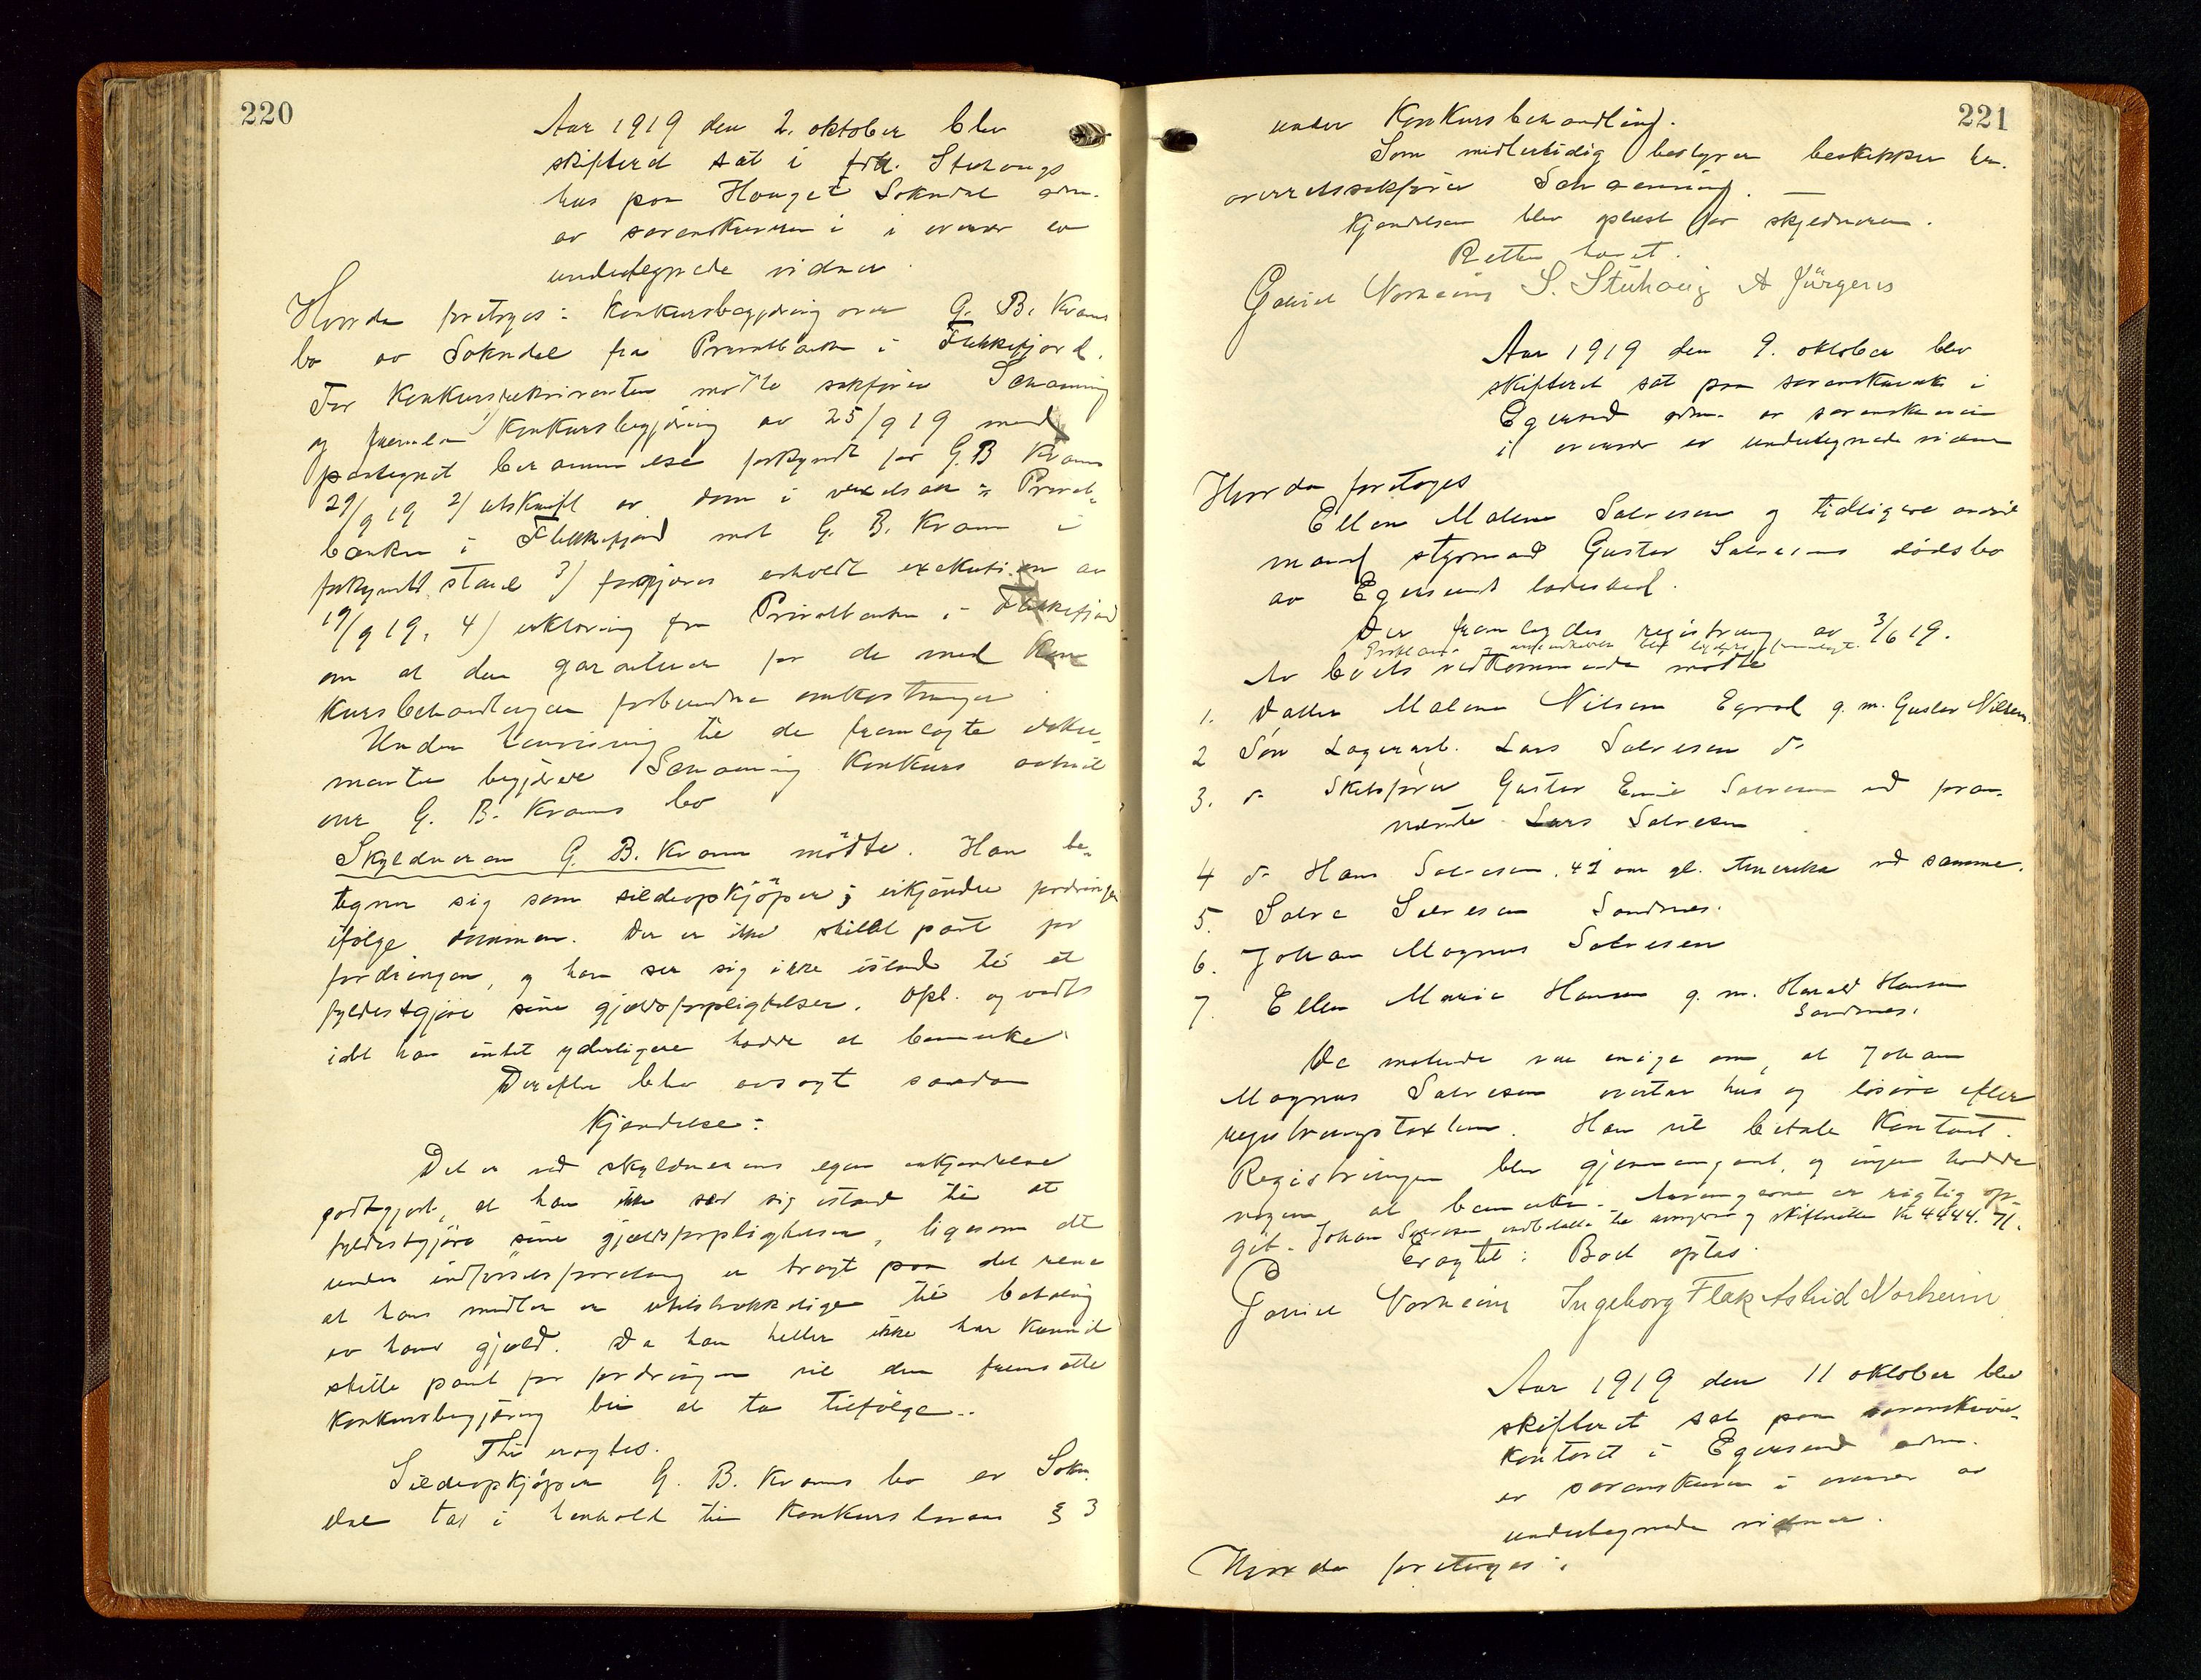 220
Aar 1919 den 2. oktober blev
skifteret sat i frk. Stuhaugs
hus paa Hauget Sokndal adm.
av sorenskriveren i overvær av
undertegnede vidner.
Hvorda foretoges: Konkursbegjæring over G. B. Krams
bo av Sokndal fra Privatbanken i Flekkefjord.
For Konkursrekvirenten mødte sakfører Schanning
og fremla 1) Konkursbegjæring av 25/9 19 med
paategnet berammelse forkyndt for G. B. Kram
29/9 19 2) utskrift av dom i vexelsak: Privat-
banken i Flekkefjord mot G. B. Kram i
forkyndt stand 3) forgjæves erholdt exekution av
19/9 19, 4) erklæring fra Privatbanken i Flekkefjord
om at den garanterer for de med Kon
kursbehandlingen forbundne omkostninger
Under henvisning til de fremlagte doku-
menter begjærer Schanning Konkurs aabnet
over G. B. Krams bo
Skyldneren G. B. Kram mödte. Han be-
tegner sig som sildeopkjöper; erkjendte fordringen
ifölge dommen. Der er ikke stillet pant for
fordringen, og han ser sig ikke istand til at
fyldestgjöre sine gjældsforpligtelser. Opl. og vedt.
idet han intet yderligere hadde at bemerke
Derefter blev avsagt saadan
Kjendelse:
Det er ved skyldnerens egen erkjendelse
godtgjort, at han ikke ser sig istand til at
fyldestgjöre sine gjældsforpligtelser, ligesom det
under indförselsforretning er bragt paa det rene
at hans midler er utilstrækkelige til betaling
av hans gjæld. Da han heller ikke har kunnet
stille pant for fordringen vil den fremsatte
Konkursbegjæring bli at ta tilfölge.
Thi eragtes.
Sildeopkjöper G. B. Krams bo av Sokn
dal tas i henhold til Konkurslovens § 3
221
under Konkursbehandling.
Som midlertidig bestyrer beskikkes hr.
overretssakfører Schanning.
Kjendelsen blev oplæst for skyldneren.
Retten hævet.
Gabriel Norheim S. Stuhaug A Jürgens
Aar 1919 den 9. oktober blev
skifteret sat paa sorenskriverk. i
Egersund adm. av sorenskriveren
i overvær av undertegnede vidner
Hvorda foretoges
Ellen Malene Salvesen og tidligere avdöde
mand styrmand Gustav Salvesens dödsbo
av Egersunds ladested.
Der fremlagdes registrering av 3/6 19.
Av boets vedkommende mødte
1. Datter Malene Nilsen Egersd g. m. Gustav Nilsen.
2 Søn Lagerarb. Lars Salvesen do
3. do Skibsfører Gustav Emil Salvesen ved foran
nævnte Lars Salvesen
4 do Hans Salvesen, 42 aar gl. Amerika ved samme.
5. Salve Salvesen Sandnes.
6. Johan Magnus Salvesen
7. Ellen Marie Hansen g. m. Harald Hansen
Sandnes.
De møtende var enige om, at Johan
Magnus Salvesen overtar hus og løsøre efter
registreringstaxten. Han vil betale kontant.
Registreringen blev gjennemgaat, og ingen hadde
noget at bemerke. Arvingerne er rigtig op-
git. Johan Salvesen indbetalte til arvingerne og skifteretten Kr 4444.71.
Eragtet: Boet optas.
Gabriel Norheim Ingeborg Flak Astrid Norheim
Aar 1919 den 11 oktober blev
skifteret sat paa sorenskriver-
kontoret i Egersund adm.
av sorenskriveren i overvær av
undertegnede vidner.
Hvorda foretoges: